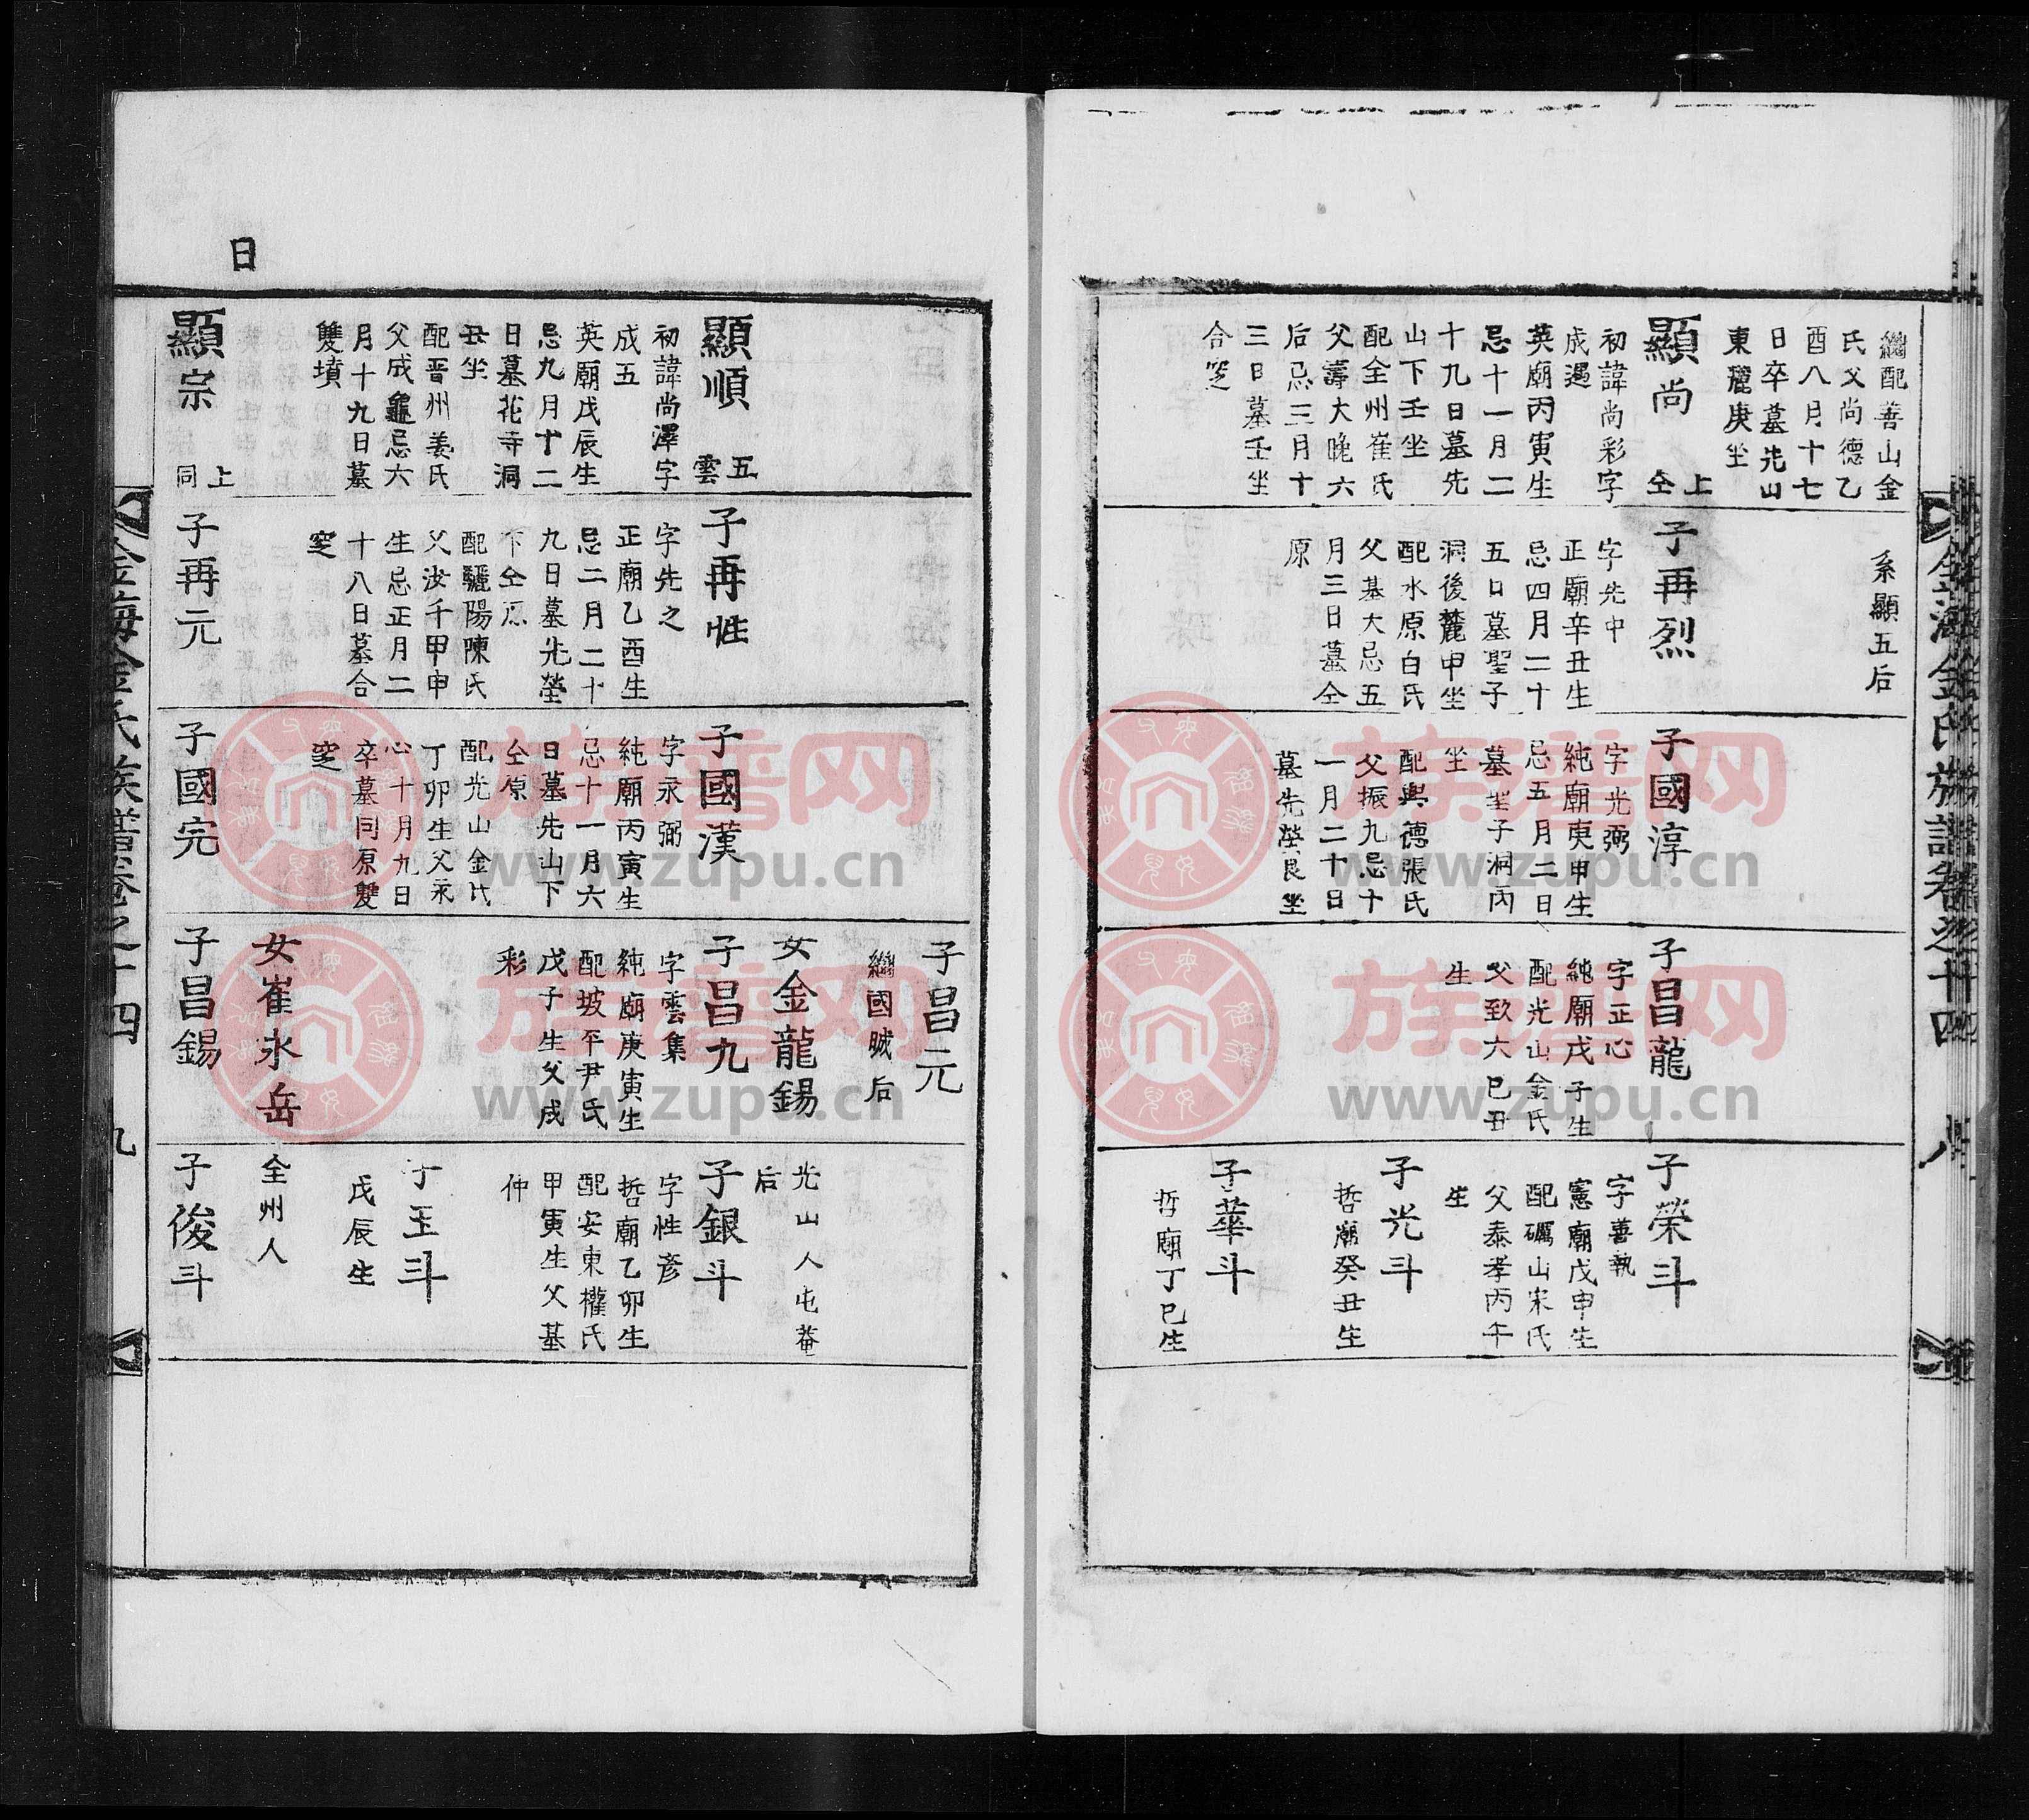 繼配善山金
氏父尚德乙
酉八月十七
日卒墓先山
東麓庚坐
顯尚
仝上
初諱尚彩字
成遇
英廟丙寅生
忌十一月二
十九日墓先
山下壬坐
配全州崔氏
父壽大晚六
后忌三月十
三日墓壬坐
合窆
系顯五后
子再烈
字先中
正廟辛丑生
忌四月二十
五日墓聖子
洞後麓甲坐
配水原白氏
父基大忌五
月三日墓仝
原
子國淳
字光弼
純廟庚申生
忌五月二日
墓聖子洞丙
坐
配興德張氏
父振九忌十
一月二十日
墓先塋艮坐
子昌龍
字正心
純廟戊子生
配光山金氏
父致六己丑
生
子榮斗
字善執
憲廟戊申生
配礪山宋氏
父泰孝丙午
生
子光斗
哲廟癸丑生
子華斗
哲廟丁巳生
金海金氏族譜卷之十四 八
日
顯順
五雲
初諱尚澤字
成五
英廟戊辰生
忌九月十二
日墓花寺洞
丑坐
配晋州姜氏
父成龜忌六
月十九日墓
雙墳
顯宗
上同
子再性
字先之
正廟乙酉生
忌二月二十
九日墓先塋
下仝原
配驪陽陳氏
父汝千甲申
生忌正月二
十八日墓合
窆
子再元
子國漢
字永弼
純廟丙寅生
忌十一月六
日墓先山下
仝原
配光山金氏
丁卯生父永
心十月九日
卒墓同原雙
窆
子國完
子昌元
繼國城后
女金龍錫
子昌九
字雲集
純廟庚寅生
配坡平尹氏
戊子生父成
彩
女崔永岳
子昌錫
光山人屯菴
后
子銀斗
字性彦
哲廟乙卯生
配安東權氏
甲寅生父基
仲
子玉斗
戊辰生
全州人
子俊斗
金海金氏族譜卷之十四 九
族谱网
www.zupu.cn
族谱网
www.zupu.cn
族谱网
www.zupu.cn
族谱网
www.zupu.cn